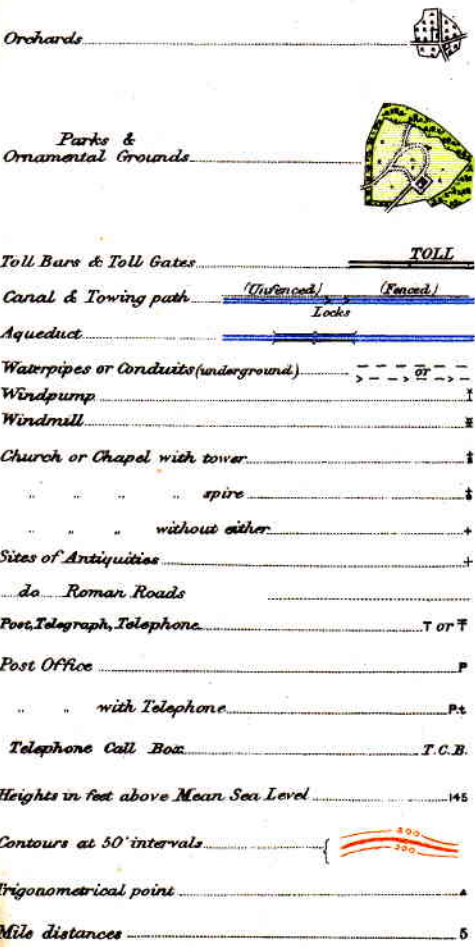 Orchards
Parks &
Ornamental Grounds
Toll Bars & Toll Gates TOLL
Canal & Towing path (Unfenced) (Fenced)
Locks
Aqueduct
Waterpipes or Conduits (underground) or
Windpump
Windmill
Church or Chapel with tower
„ „ „ „ spire
„ „ „ without either
Sites of Antiquities
do Roman Roads
Post, Telegraph, Telephone T or T
Post Office P
„ „ with Telephone P.t
Telephone Call Box T.C.B.
Heights in feet above Mean Sea Level 145
Contours at 50' intervals 200
Trigonometrical point
Mile distances 5